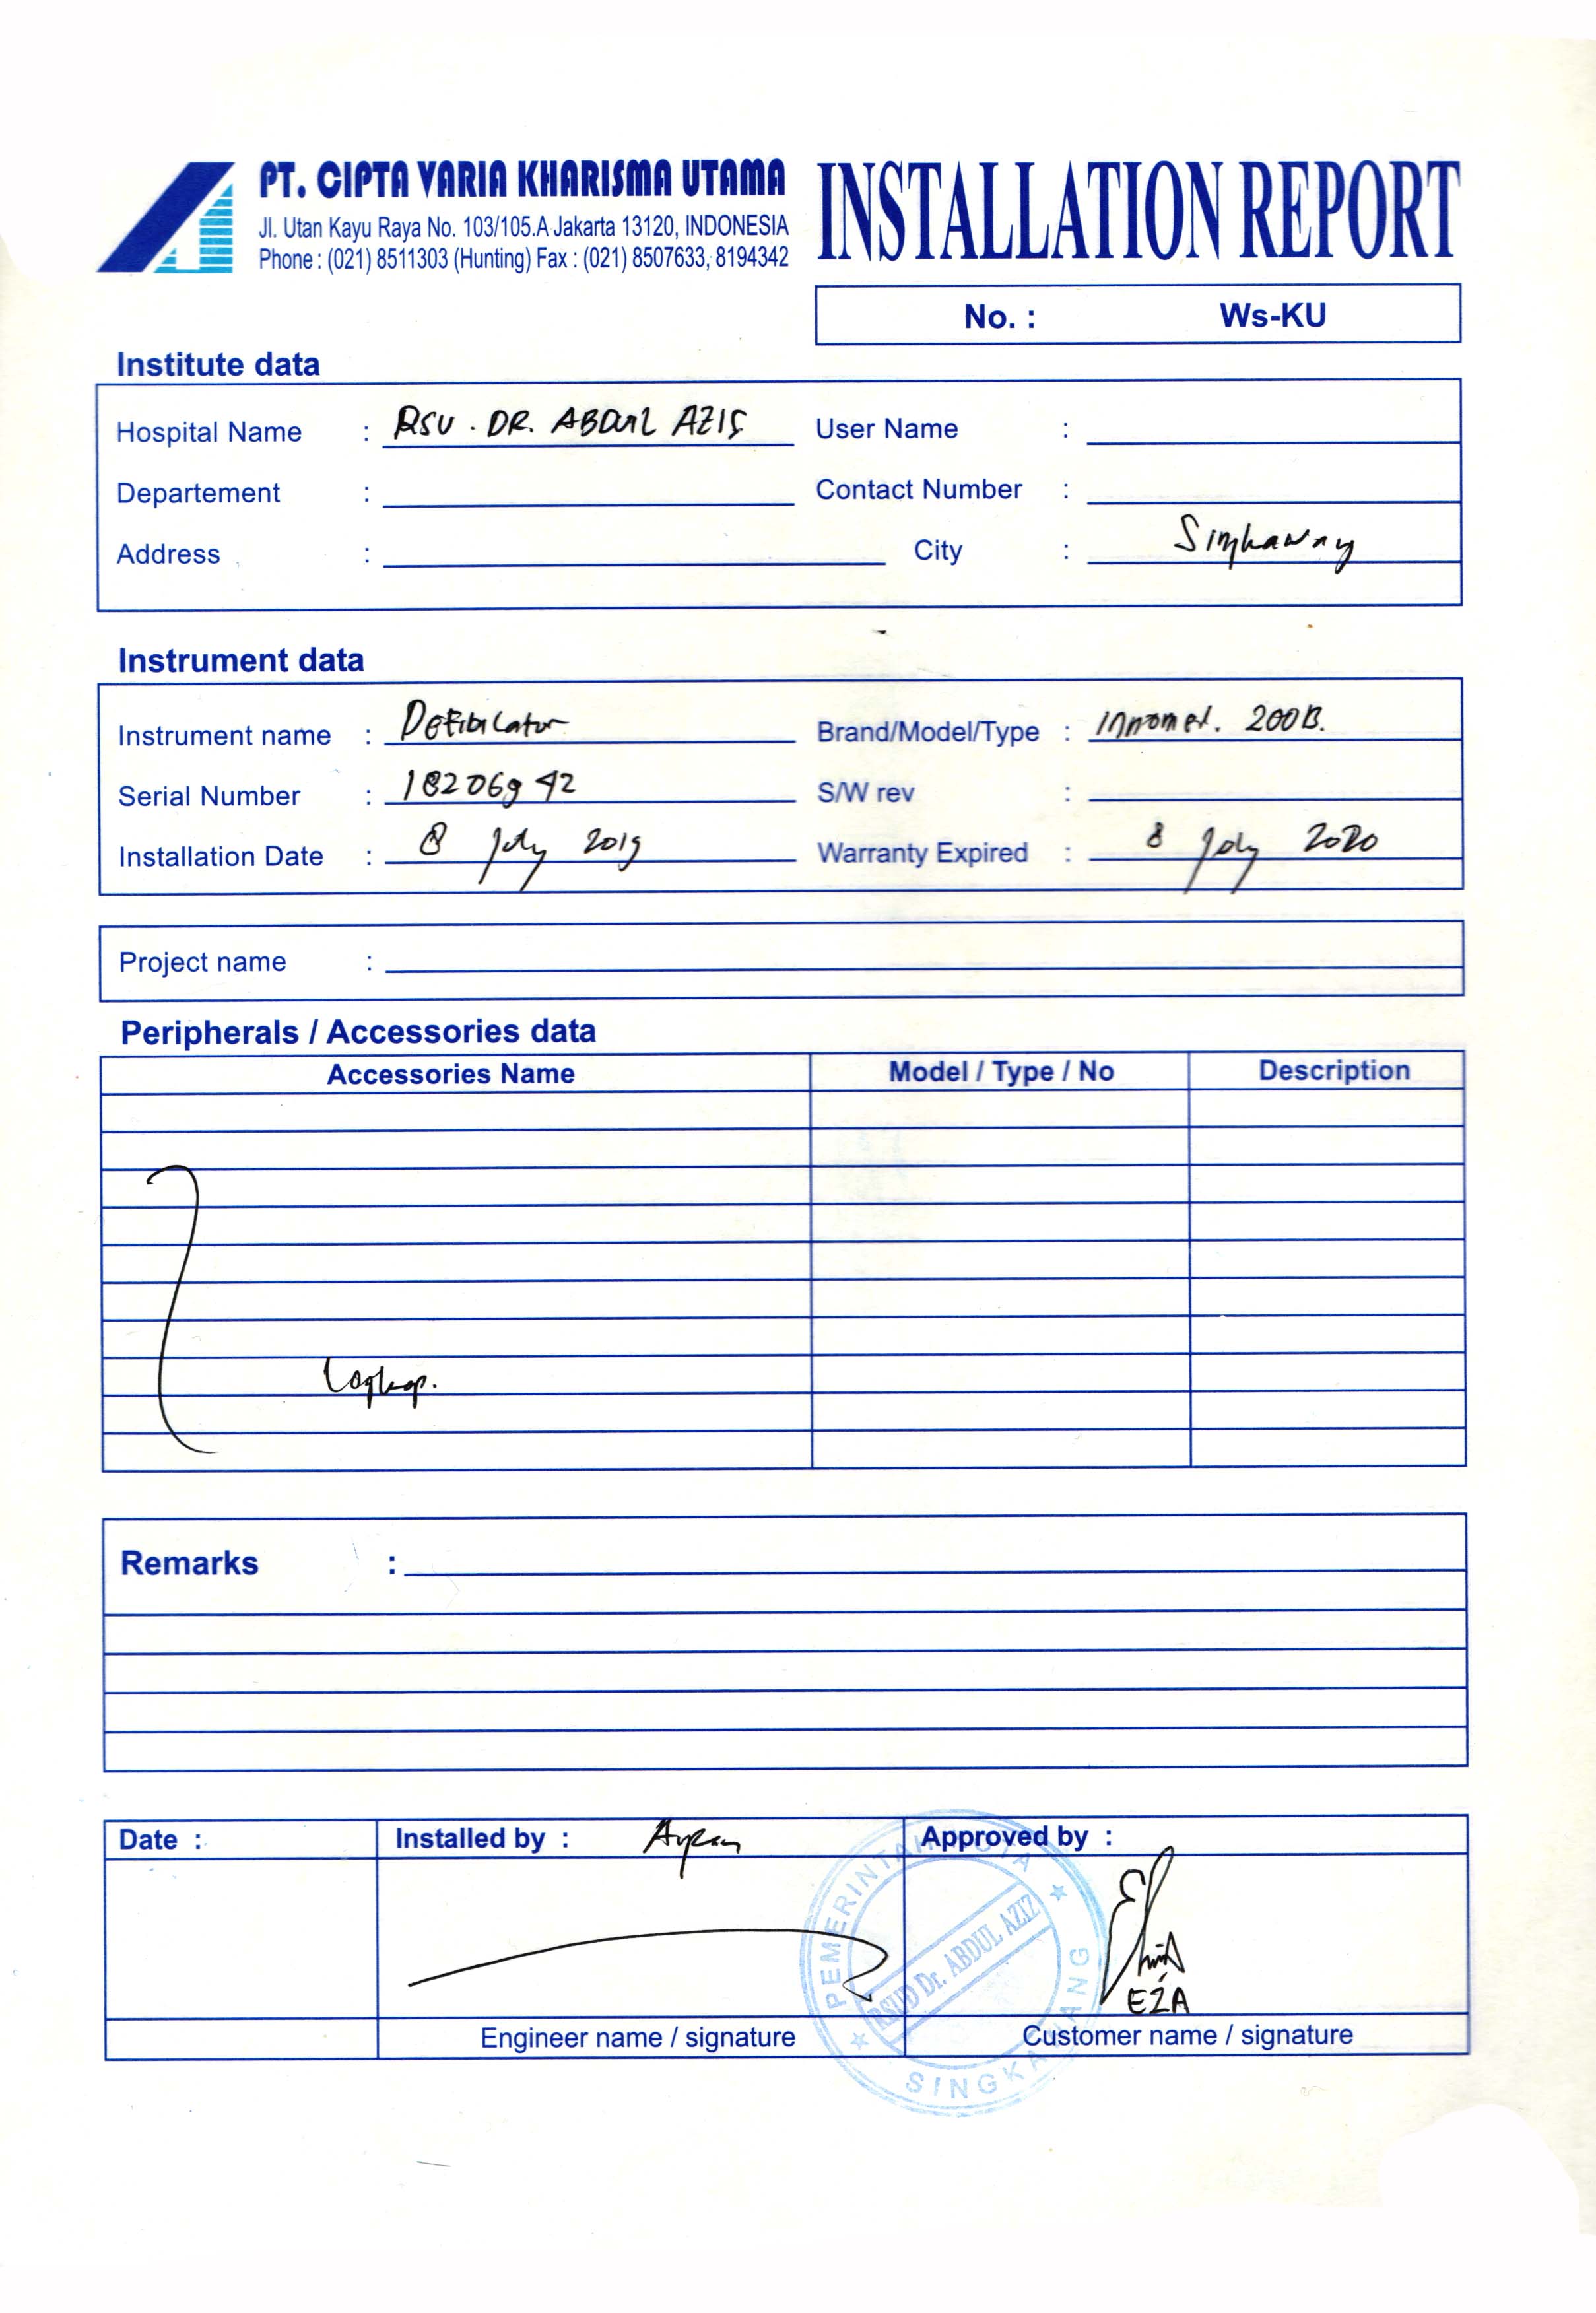 PT. CIPTA VARIA KHARISMA UTAMA
Jl. Utan Kayu Raya No. 103/105.A Jakarta 13120, INDONESIA
Phone : (021) 8511303 (Hunting) Fax : (021) 8507633, 8194342
INSTALLATION REPORT
No. : Ws-KU
Institute data
Hospital Name : RSU. DR. ABDUL AZIS User Name :
Departement : Contact Number :
Address : City : Singkawang
Instrument data
Instrument name : DeFibilator Brand/Model/Type : 200B.
Serial Number : 18206942 S/W rev :
Installation Date : 8 July 2019 Warranty Expired : 8 July 2020
Project name :
Peripherals / Accessories data
Accessories Name Model / Type / No Description
Lengkap.
Remarks :
Date : Installed by : Approved by :
PEMERINTAH KOTA
RSUD Dr. ABDUL AZIZ
SINGKAWANG
EZA
Engineer name / signature Customer name / signature